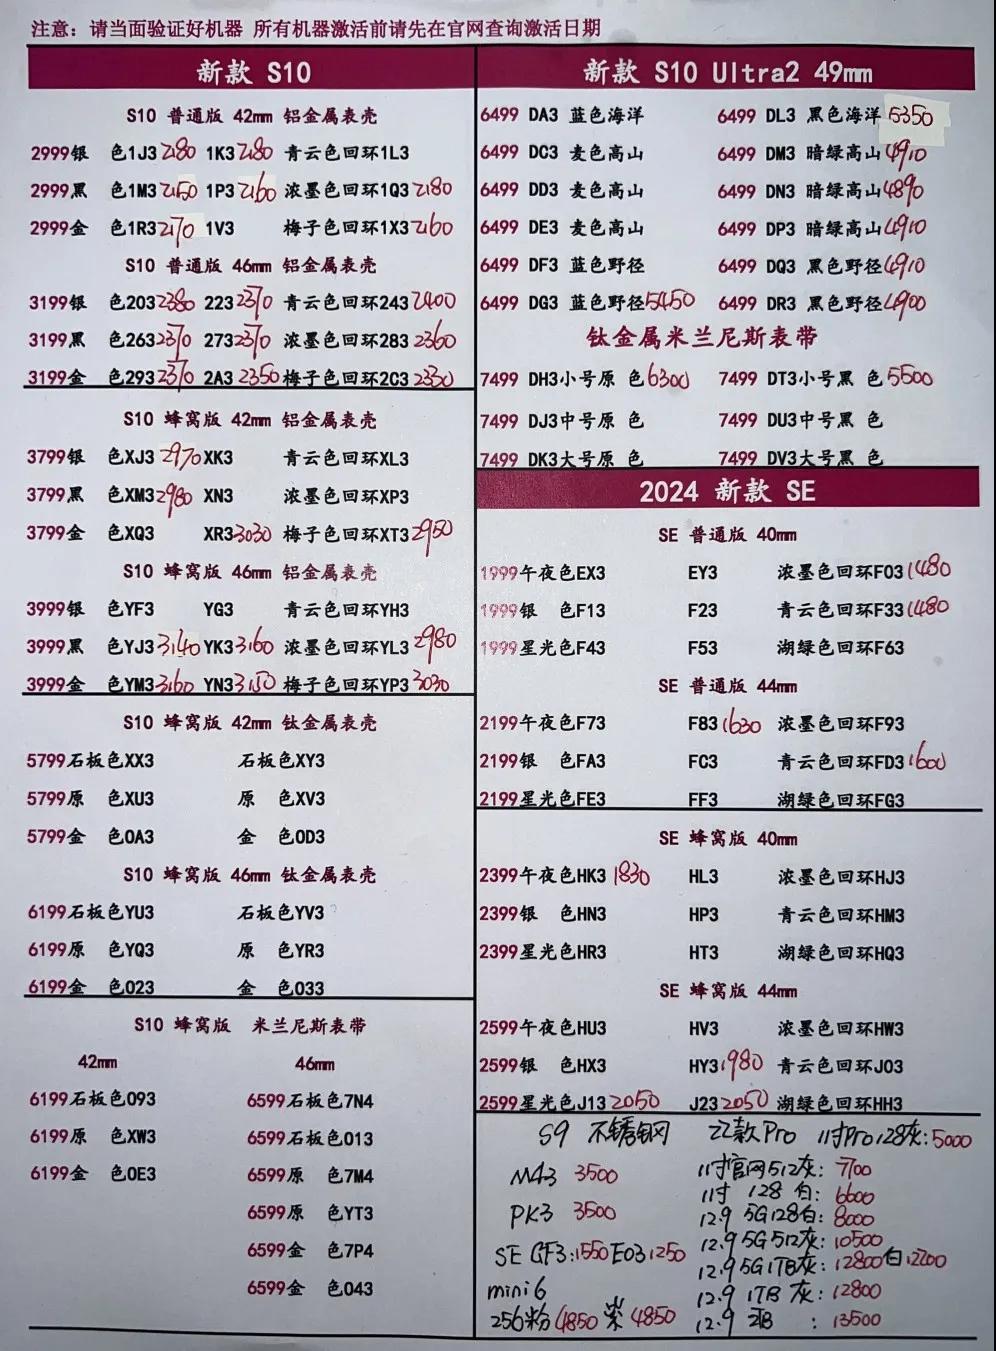 注意：请当面验证好机器 所有机器激活前请先在官网查询激活日期
新款 S10
S10 普通版 42mm 铝金属表壳
2999银 色1J3 2180 1K3 2180 青云色回环1L3
2999黑 色1M3 2150 1P3 2160 浓墨色回环1Q3 2180
2999金 色1R3 2170 1V3 梅子色回环1X3 2160
S10 普通版 46mm 铝金属表壳
3199银 色203 2380 223 2370 青云色回环243 2400
3199黑 色263 2370 273 2370 浓墨色回环283 2360
3199金 色293 2370 2A3 2350 梅子色回环2C3 2330
S10 蜂窝版 42mm 铝金属表壳
3799银 色XJ3 2970 XK3 青云色回环XL3
3799黑 色XM3 2980 XN3 浓墨色回环XP3
3799金 色XQ3 XR3 3030 梅子色回环XT3 2950
S10 蜂窝版 46mm 铝金属表壳
3999银 色YF3 YG3 青云色回环YH3
3999黑 色YJ3 3140 YK3 3160 浓墨色回环YL3 2980
3999金 色YM3 3160 YN3 3150 梅子色回环YP3 3030
S10 蜂窝版 42mm 钛金属表壳
5799石板色XX3 石板色XY3
5799原 色XU3 原 色XV3
5799金 色0A3 金 色0D3
S10 蜂窝版 46mm 钛金属表壳
6199石板色YU3 石板色YV3
6199原 色YQ3 原 色YR3
6199金 色023 金 色033
S10 蜂窝版 米兰尼斯表带
42mm 46mm
6199石板色093 6599石板色7N4
6199原 色XW3 6599石板色013
6199金 色0E3 6599原 色7M4
6599原 色YT3
6599金 色7P4
6599金 色043
新款 S10 Ultra2 49mm
6499 DA3 蓝色海洋 6499 DL3 黑色海洋 5350
6499 DC3 麦色高山 6499 DM3 暗绿高山 4910
6499 DD3 麦色高山 6499 DN3 暗绿高山 4890
6499 DE3 麦色高山 6499 DP3 暗绿高山 4910
6499 DF3 蓝色野径 6499 DQ3 黑色野径 4910
6499 DG3 蓝色野径 5450 6499 DR3 黑色野径 4900
钛金属米兰尼斯表带
7499 DH3小号原 色 6300 7499 DT3小号黑 色 5500
7499 DJ3中号原 色 7499 DU3中号黑 色
7499 DK3大号原 色 7499 DV3大号黑 色
2024 新款 SE
SE 普通版 40mm
1999午夜色EX3 EY3 浓墨色回环F03 1480
1999银 色F13 F23 青云色回环F33 1480
1999星光色F43 F53 湖绿色回环F63
SE 普通版 44mm
2199午夜色F73 F83 1630 浓墨色回环F93
2199银 色FA3 FC3 青云色回环FD3 1600
2199星光色FE3 FF3 湖绿色回环FG3
SE 蜂窝版 40mm
2399午夜色HK3 1830 HL3 浓墨色回环HJ3
2399银 色HN3 HP3 青云色回环HM3
2399星光色HR3 HT3 湖绿色回环HQ3
SE 蜂窝版 44mm
2599午夜色HU3 HV3 浓墨色回环HW3
2599银 色HX3 HY3 1980 青云色回环J03
2599星光色J13 2050 J23 2050 湖绿色回环HH3
S9 不锈钢网 22款Pro 11寸Pro128灰：5000
M43 3500 11寸官网512灰：7700
11寸 128 白：6600
PK3 3500 12.9 5G128白：8000
12.9 5G 512灰：10500
SE GF3：1550 E03 1250 12.9 5G1TB灰：12800 白 12200
mini6 12.9 1TB 灰：12800
256粉 4850 紫 4850 12.9 2TB ：13500